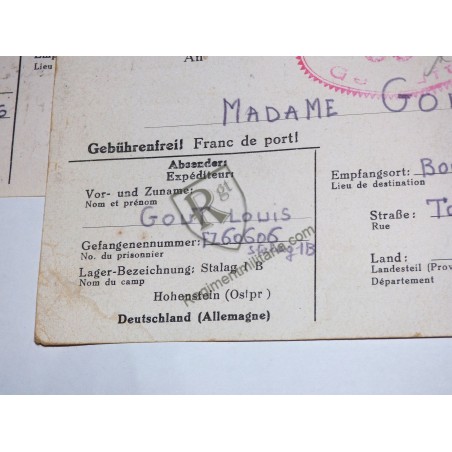 An
MADAME GO
Gebührenfrei! Franc de port!
Absender:
Expéditeur:
Vor- und Zuname:
Nom et prénom
LOUIS
Gefangenennummer:
No. du prisonnier
Lager-Bezeichnung: Stalag I B
Nom du camp
Hohenstein (Ostpr)
Deutschland (Allemagne)
Empfangsort: Bo
Lieu de destination
Straße: To
Rue
Land:
Landesteil (Prov
Département
Lieu
Rgt
Regimentmilitaria.com